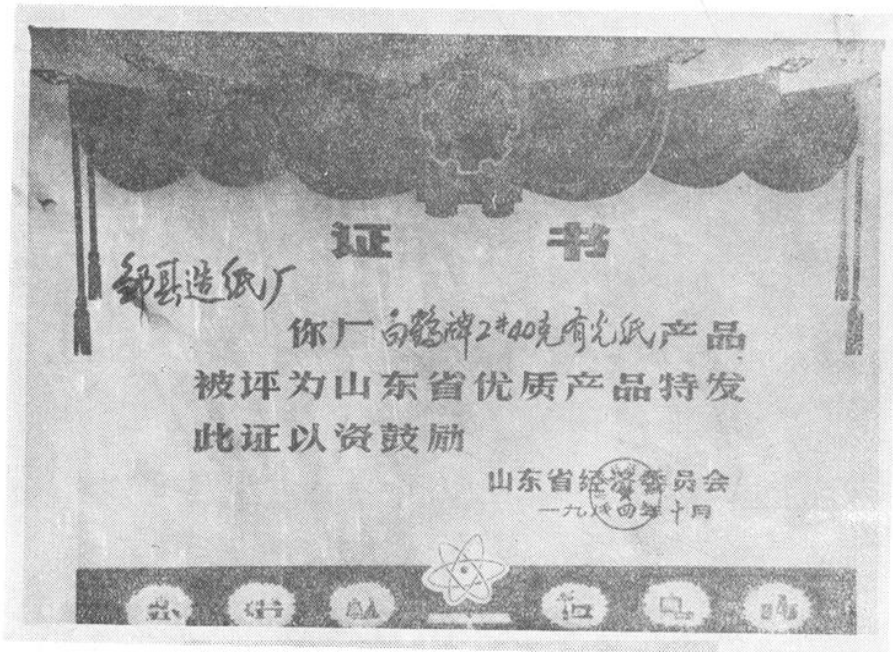 证 书
邹县造纸厂
你厂白鹤牌2#40克有光纸产品
被评为山东省优质产品特发
此证以资鼓励
山东省经济委员会
一九八四年十月